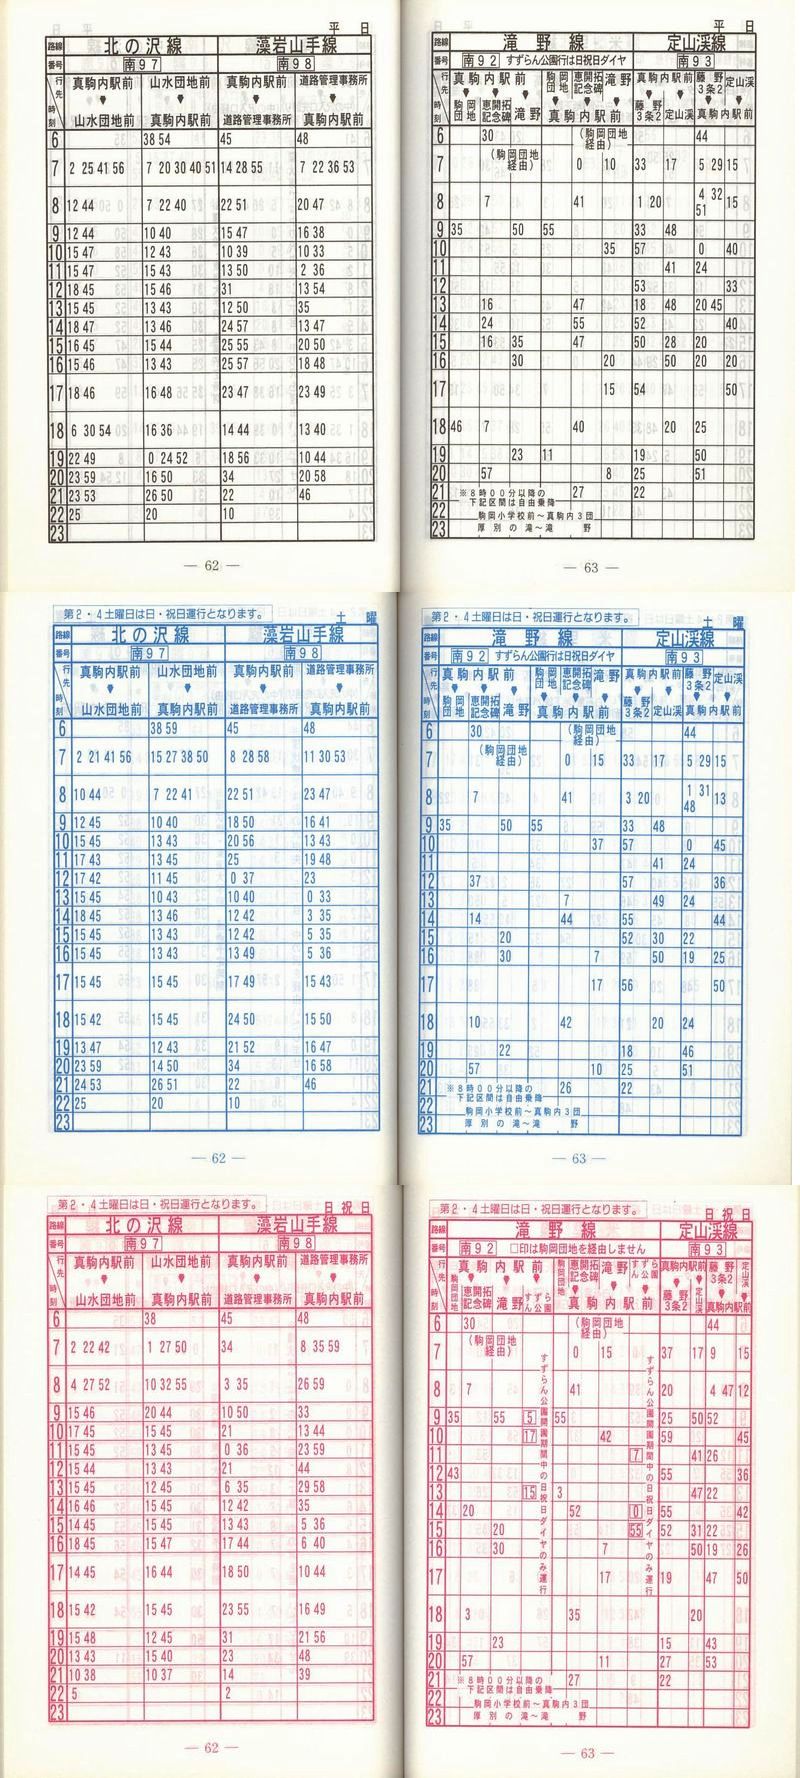 平 日
路線 北の沢線 藻岩山手線
番号 南97 南98
行先 真駒内駅前 山水団地前 真駒内駅前 道路管理事務所
時刻 山水団地前 真駒内駅前 道路管理事務所 真駒内駅前
6 38 54 45 48
7 2 25 41 56 7 20 30 40 51 14 28 55 7 22 36 53
8 12 44 7 22 40 22 51 20 47
9 12 44 10 40 15 47 16 38
10 15 47 12 43 10 39 10 33
11 15 47 15 43 13 50 2 36
12 18 45 15 46 31 13 54
13 15 45 13 43 12 50 35
14 18 47 13 46 24 57 13 47
15 16 45 15 44 25 55 20 50
16 15 46 13 43 25 57 18 48
17 18 46 16 48 23 47 23 49
18 6 30 54 16 36 14 44 13 40
19 22 49 0 24 52 18 56 10 44
20 23 59 16 50 34 20 58
21 23 53 26 50 22 46
22 25 20 10
23
— 62 —
平 日
路線 滝野線 定山渓線
番号 南92 すずらん公園行は日祝日ダイヤ 南93
行先 真駒内駅前 駒岡団地 恵開拓記念碑 滝野 真駒内駅前 藤野3条2 定山渓
時刻 駒岡団地 恵開拓記念碑 滝野 真駒内駅前 藤野3条2 定山渓 真駒内駅前
6 30 (駒岡団地経由) 44
7 (駒岡団地経由) 0 10 33 17 5 29 15
8 7 41 1 20 4 32 51 15
9 35 50 55 33 48
10 35 57 0 40
11 41 24
12 53 33
13 16 47 18 48 20 45
14 24 55 52 40
15 16 35 47 50 28 20
16 30 20 50 20 20
17 15 54 50
18 46 7 40 20 25
19 23 11 19 50
20 57 8 25 51
21 ※8時00分以降の 27 22
下記区間は自由乗降
22 駒岡小学校前〜真駒内3団
23 厚別の滝〜滝野
— 63 —
第2・4土曜日は日・祝日運行となります。
土 曜
路線 北の沢線 藻岩山手線
番号 南97 南98
行先 真駒内駅前 山水団地前 真駒内駅前 道路管理事務所
時刻 山水団地前 真駒内駅前 道路管理事務所 真駒内駅前
6 38 59 45 48
7 2 21 41 56 15 27 38 50 8 28 58 11 30 53
8 10 44 7 22 41 22 51 23 47
9 12 45 10 40 18 50 16 41
10 15 45 13 43 20 56 13 43
11 17 43 13 45 25 19 48
12 17 42 11 45 0 37 23
13 15 45 10 43 10 40 0 33
14 18 45 13 46 12 42 3 35
15 15 45 10 43 12 42 5 35
16 15 45 13 43 13 49 5 36
17 15 45 15 45 17 49 15 43
18 15 42 15 45 24 50 15 50
19 13 47 12 43 21 52 16 47
20 23 59 14 50 34 16 58
21 24 53 26 51 22 46
22 25 20 10
23
— 62 —
第2・4土曜日は日・祝日運行となります。
土 曜
路線 滝野線 定山渓線
番号 南92 すずらん公園行は日祝日ダイヤ 南93
行先 真駒内駅前 駒岡団地 恵開拓記念碑 滝野 真駒内駅前 藤野3条2 定山渓
時刻 駒岡団地 恵開拓記念碑 滝野 真駒内駅前 藤野3条2 定山渓 真駒内駅前
6 30 (駒岡団地経由) 44
7 (駒岡団地経由) 0 15 33 17 5 29 15
8 7 41 3 20 1 31 48 13
9 35 50 55 33 48
10 37 57 0 45
11 41 24
12 37 57 36
13 7 49 24
14 14 44 55 44
15 20 52 30 22
16 30 7 50 19 25
17 17 56 50
18 10 42 20 24
19 22 18 46
20 57 10 25 51
21 ※8時00分以降の 26 22
下記区間は自由乗降
22 駒岡小学校前〜真駒内3団
23 厚別の滝〜滝野
— 63 —
第2・4土曜日は日・祝日運行となります。
日 祝 日
路線 北の沢線 藻岩山手線
番号 南97 南98
行先 真駒内駅前 山水団地前 真駒内駅前 道路管理事務所
時刻 山水団地前 真駒内駅前 道路管理事務所 真駒内駅前
6 38 45 48
7 2 22 42 1 27 50 34 8 35 59
8 4 27 52 10 32 55 3 35 26 59
9 15 46 20 44 10 50 33
10 17 45 15 45 21 13 44
11 15 45 13 45 0 36 23 59
12 15 44 13 43 21 44
13 15 45 12 45 6 35 29 58
14 16 46 15 45 12 42 35
15 14 45 15 45 13 43 5 36
16 18 45 15 47 17 44 6 40
17 14 45 16 44 18 50 10 44
18 15 42 15 45 23 55 16 49
19 15 48 12 45 31 21 56
20 13 43 15 40 23 48
21 10 38 10 37 14 39
22 5 2
23
— 62 —
第2・4土曜日は日・祝日運行となります。
日 祝 日
路線 滝野線 定山渓線
番号 南92 □印は駒岡団地を経由しません 南93
行先 真駒内駅前 駒岡団地 恵開拓記念碑 滝野 すずらん公園 真駒内駅前 藤野3条2 定山渓
時刻 駒岡団地 恵開拓記念碑 滝野 すずらん公園 真駒内駅前 藤野3条2 定山渓 真駒内駅前
6 30 (駒岡団地経由) 44
7 (駒岡団地経由) 0 15 37 17 9 15
8 7 41 20 4 47 12
9 35 55 5 55 25 50 52
10 17 42 59 45
11 7 41 26
12 43 55 36
13 15 3 47 22
14 20 52 0 55 42
15 20 55 52 31 22
16 30 7 50 19 26
17 17 19 47 50
18 3 35 20
19 23 15 43
20 57 11 27 53
すずらん公園開園期間中の日祝日ダイヤのみ運行
すずらん公園開園期間中の日祝日ダイヤのみ運行
21 ※8時00分以降の 27 22
下記区間は自由乗降
22 駒岡小学校前〜真駒内3団
23 厚別の滝〜滝野
— 63 —